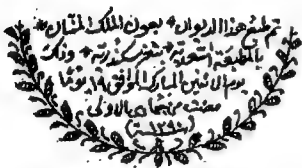 تم طبع هذا الديوان * بعون الملك المنان *
بالمطبعة السعدية * بثغر سكندرية * وذلك
يوم الاثنين المبارك الموافق ١٨ يوما
مضت من جمادى الاولى
سنة